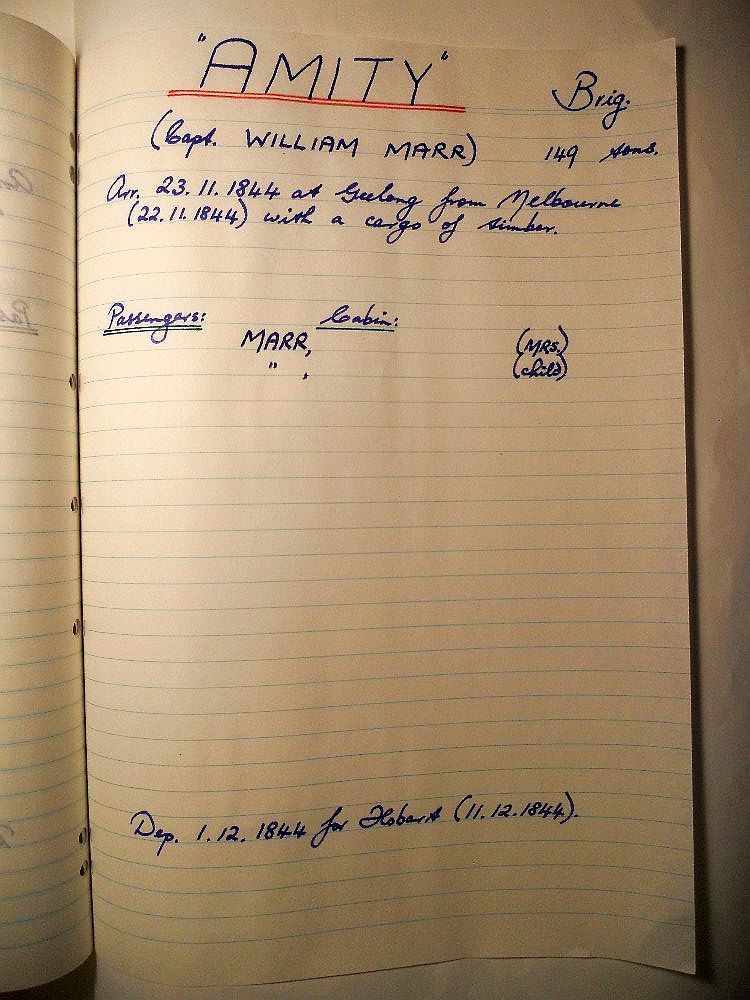 "AMITY"
Brig.
(Capt. WILLIAM MARR) 149 tons.
Arr. 23.11.1844 at Geelong from Melbourne
(22.11.1844) with a cargo of timber.
Passengers: Cabin:
MARR, (MRS.)
" , (child)
Dep. 1.12.1844 for Hobart (11.12.1844).